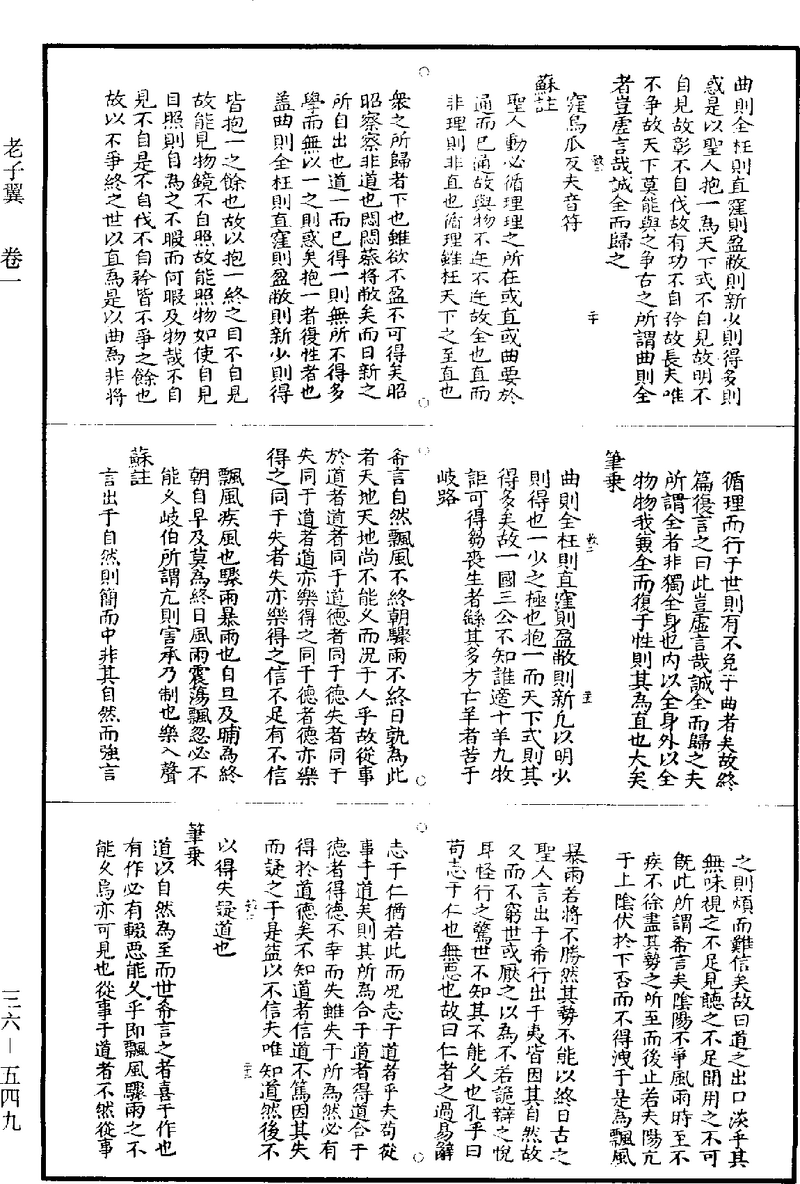 老子翼　卷一
三六－五四九
曲則全枉則直窪則盈敝則新少則得多則
惑是以聖人抱一為天下式不自見故明不
自見故彰不自伐故有功不自矜故長夫唯
不争故天下莫能與之争古之所謂曲則全
者豈虚言哉誠全而歸之
窪烏瓜反夫音符
蘇註
聖人動必循理理之所在或直或曲要於
通而已通故與物不迕不迕故全也直而
非理則非直也循理雖枉天下之至直也
衆之所歸者下也雖欲不盈不可得矣昭
昭察察非道也悶悶若將敝矣而日新之
所自出也道一而已得一則無所不得多
學而無以一之則惑矣抱一者復性者也
蓋曲則全枉則直窪則盈敝則新少則得
皆抱一之餘也故以抱一終之目不自見
故能見物鏡不自照故能照物如使自見
自照則自為之不暇而何暇及物哉不自
見不自是不自伐不自矜皆不爭之餘也
故以不爭終之世以直為是以曲為非將
循理而行于世則有不免于曲者矣故終
篇復言之曰此豈虚言哉誠全而歸之夫
所謂全者非獨全身也内以全身外以全
物物我兼全而復于性則其為直也大矣
筆乗
曲則全枉則直窪則盈敝則新凡以明少
則得也一少之極也抱一而天下式則其
得多矣故一國三公不知誰適十羊九牧
詎可得芻喪生者繇其多方亡羊者苦于
岐路
希言自然飄風不終朝驟雨不終日孰為此
者天地天地尚不能久而況于人乎故從事
於道者道者同于道德者同于德失者同于
失同于道者道亦樂得之同于德者德亦樂
得之同于失者失亦樂得之信不足有不信
飄風疾風也驟雨暴雨也自旦及晡為終
朝自早及莫為終日風雨震荡飄忽必不
能久岐伯所謂亢則害承乃制也樂入聲
蘇註
言出于自然則簡而中非其自然而強言
之則煩而難信矣故曰道之出口淡乎其
無味視之不足見聽之不足聞用之不可
旣此所謂希言矣陰陽不爭風雨時至不
疾不徐盡其勢之所至而後止若夫陽亢
于上陰伏於下否而不得洩于是為飄風
暴雨若將不勝然其勢不能以終日古之
聖人言出于希行出于夷皆因其自然故
久而不窮世或厭之以為不若詭辯之悅
耳怪行之驚世不知其不能久也孔乎曰
苟志于仁也無惡也故曰仁者之過易辭
志于仁猶若此而况志于道者乎夫苟從
事于道矣則其所為合于道者得道合于
德者得德不幸而失雖失于所為然必有
得於道德矣不知道者信道不篤因其失
而疑之于是益以不信夫唯知道然後不
以得失疑道也
筆乗
道以自然為至而世希言之者喜于作也
有作必有輟悪能久乎即飄風驟雨之不
能久烏亦可見也從事于道者不然從事